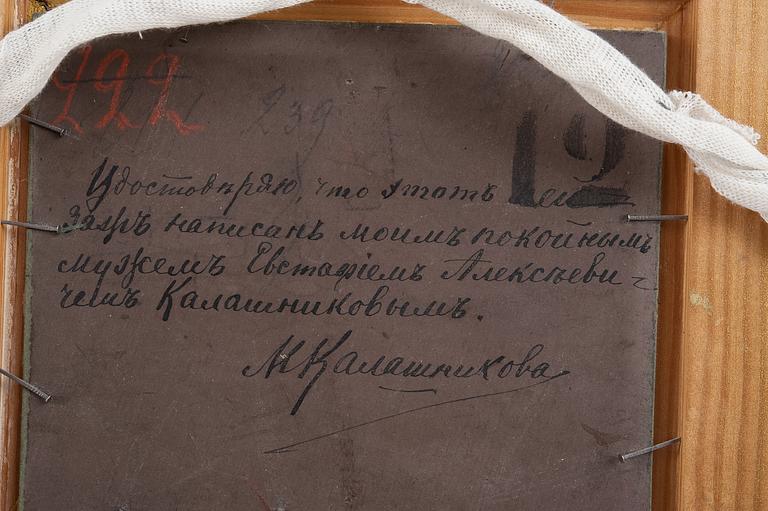 222
239
12
Удостовѣряю, что этотъ пей
зажъ написанъ моимъ покойнымъ
мужемъ Евстафіемъ Алексѣеви-
чемъ Калашниковымъ.
М Калашникова